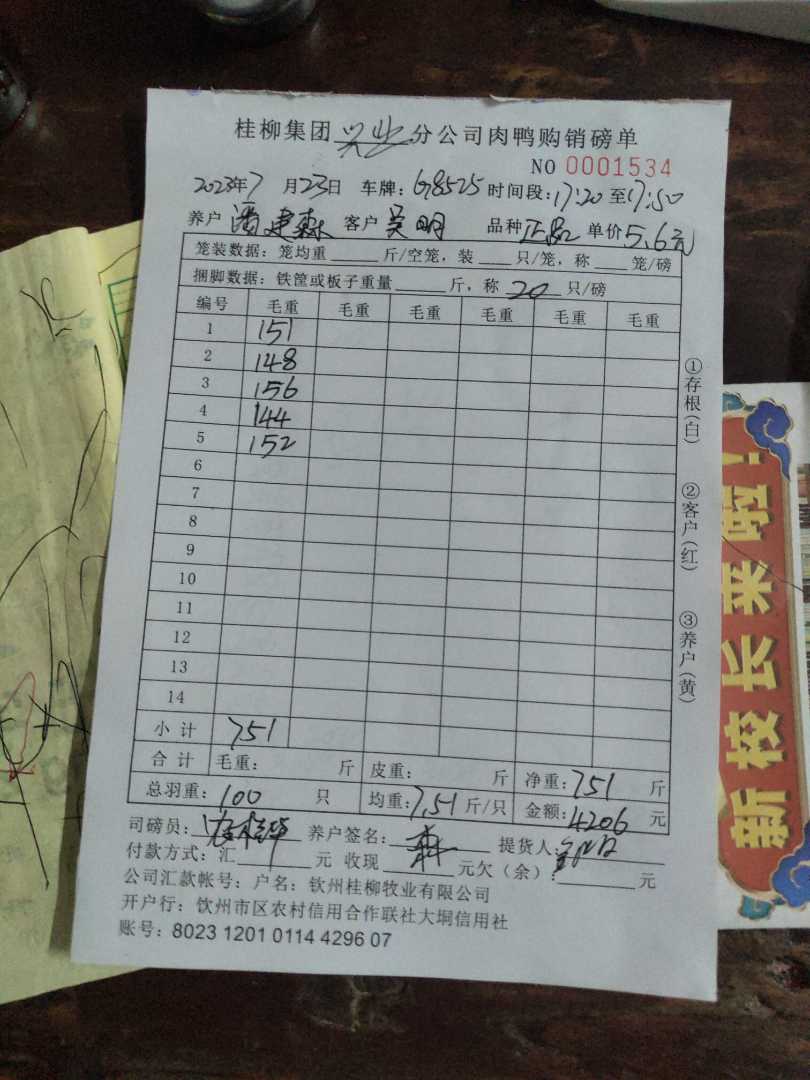 桂柳集团兴业分公司肉鸭购销磅单
NO 0001534
2023年7月23日 车牌:G8525 时间段:17:20至17:50
养户 潘建森 客户 吴明 品种 正品 单价5.6元
笼装数据:笼均重 斤/空笼,装 只/笼,称 笼/磅
捆脚数据:铁筐或板子重量 斤,称 20 只/磅
编号 毛重 毛重 毛重 毛重 毛重 毛重
1 151
2 148
3 156
4 144
5 152
6
7
8
9
10
11
12
13
14
小计 751
合计 毛重: 斤 皮重: 斤 净重:751 斤
总羽重:100 只 均重:7.51斤/只 金额:4206元
司磅员: 养户签名:森 提货人:
付款方式:汇 元 收现 元欠(余): 元
公司汇款帐号:户名:钦州桂柳牧业有限公司
开户行:钦州市区农村信用合作联社大垌信用社
账号:8023 1201 0114 4296 07
①存根(白)
②客户(红)
③养户(黄)
新校长来啦!